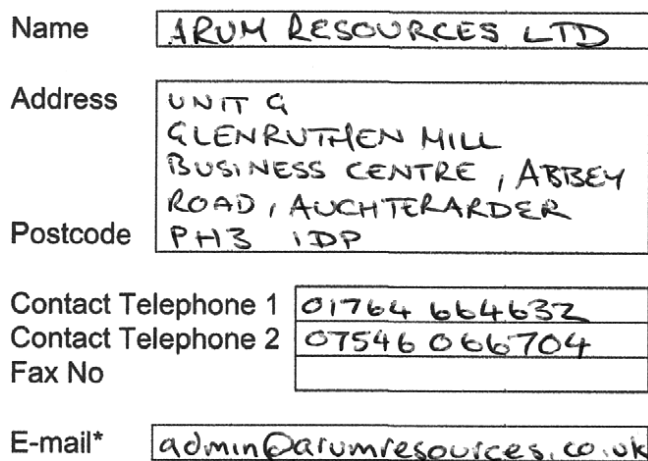 Name ARUM RESOURCES LTD
Address UNIT G
GLENRUTHEN MILL
BUSINESS CENTRE, ABBEY
ROAD, AUCHTERARDER
Postcode PH3 1DP
Contact Telephone 1 01764 664632
Contact Telephone 2 07546 066704
Fax No
E-mail* admin@arumresources.co.uk